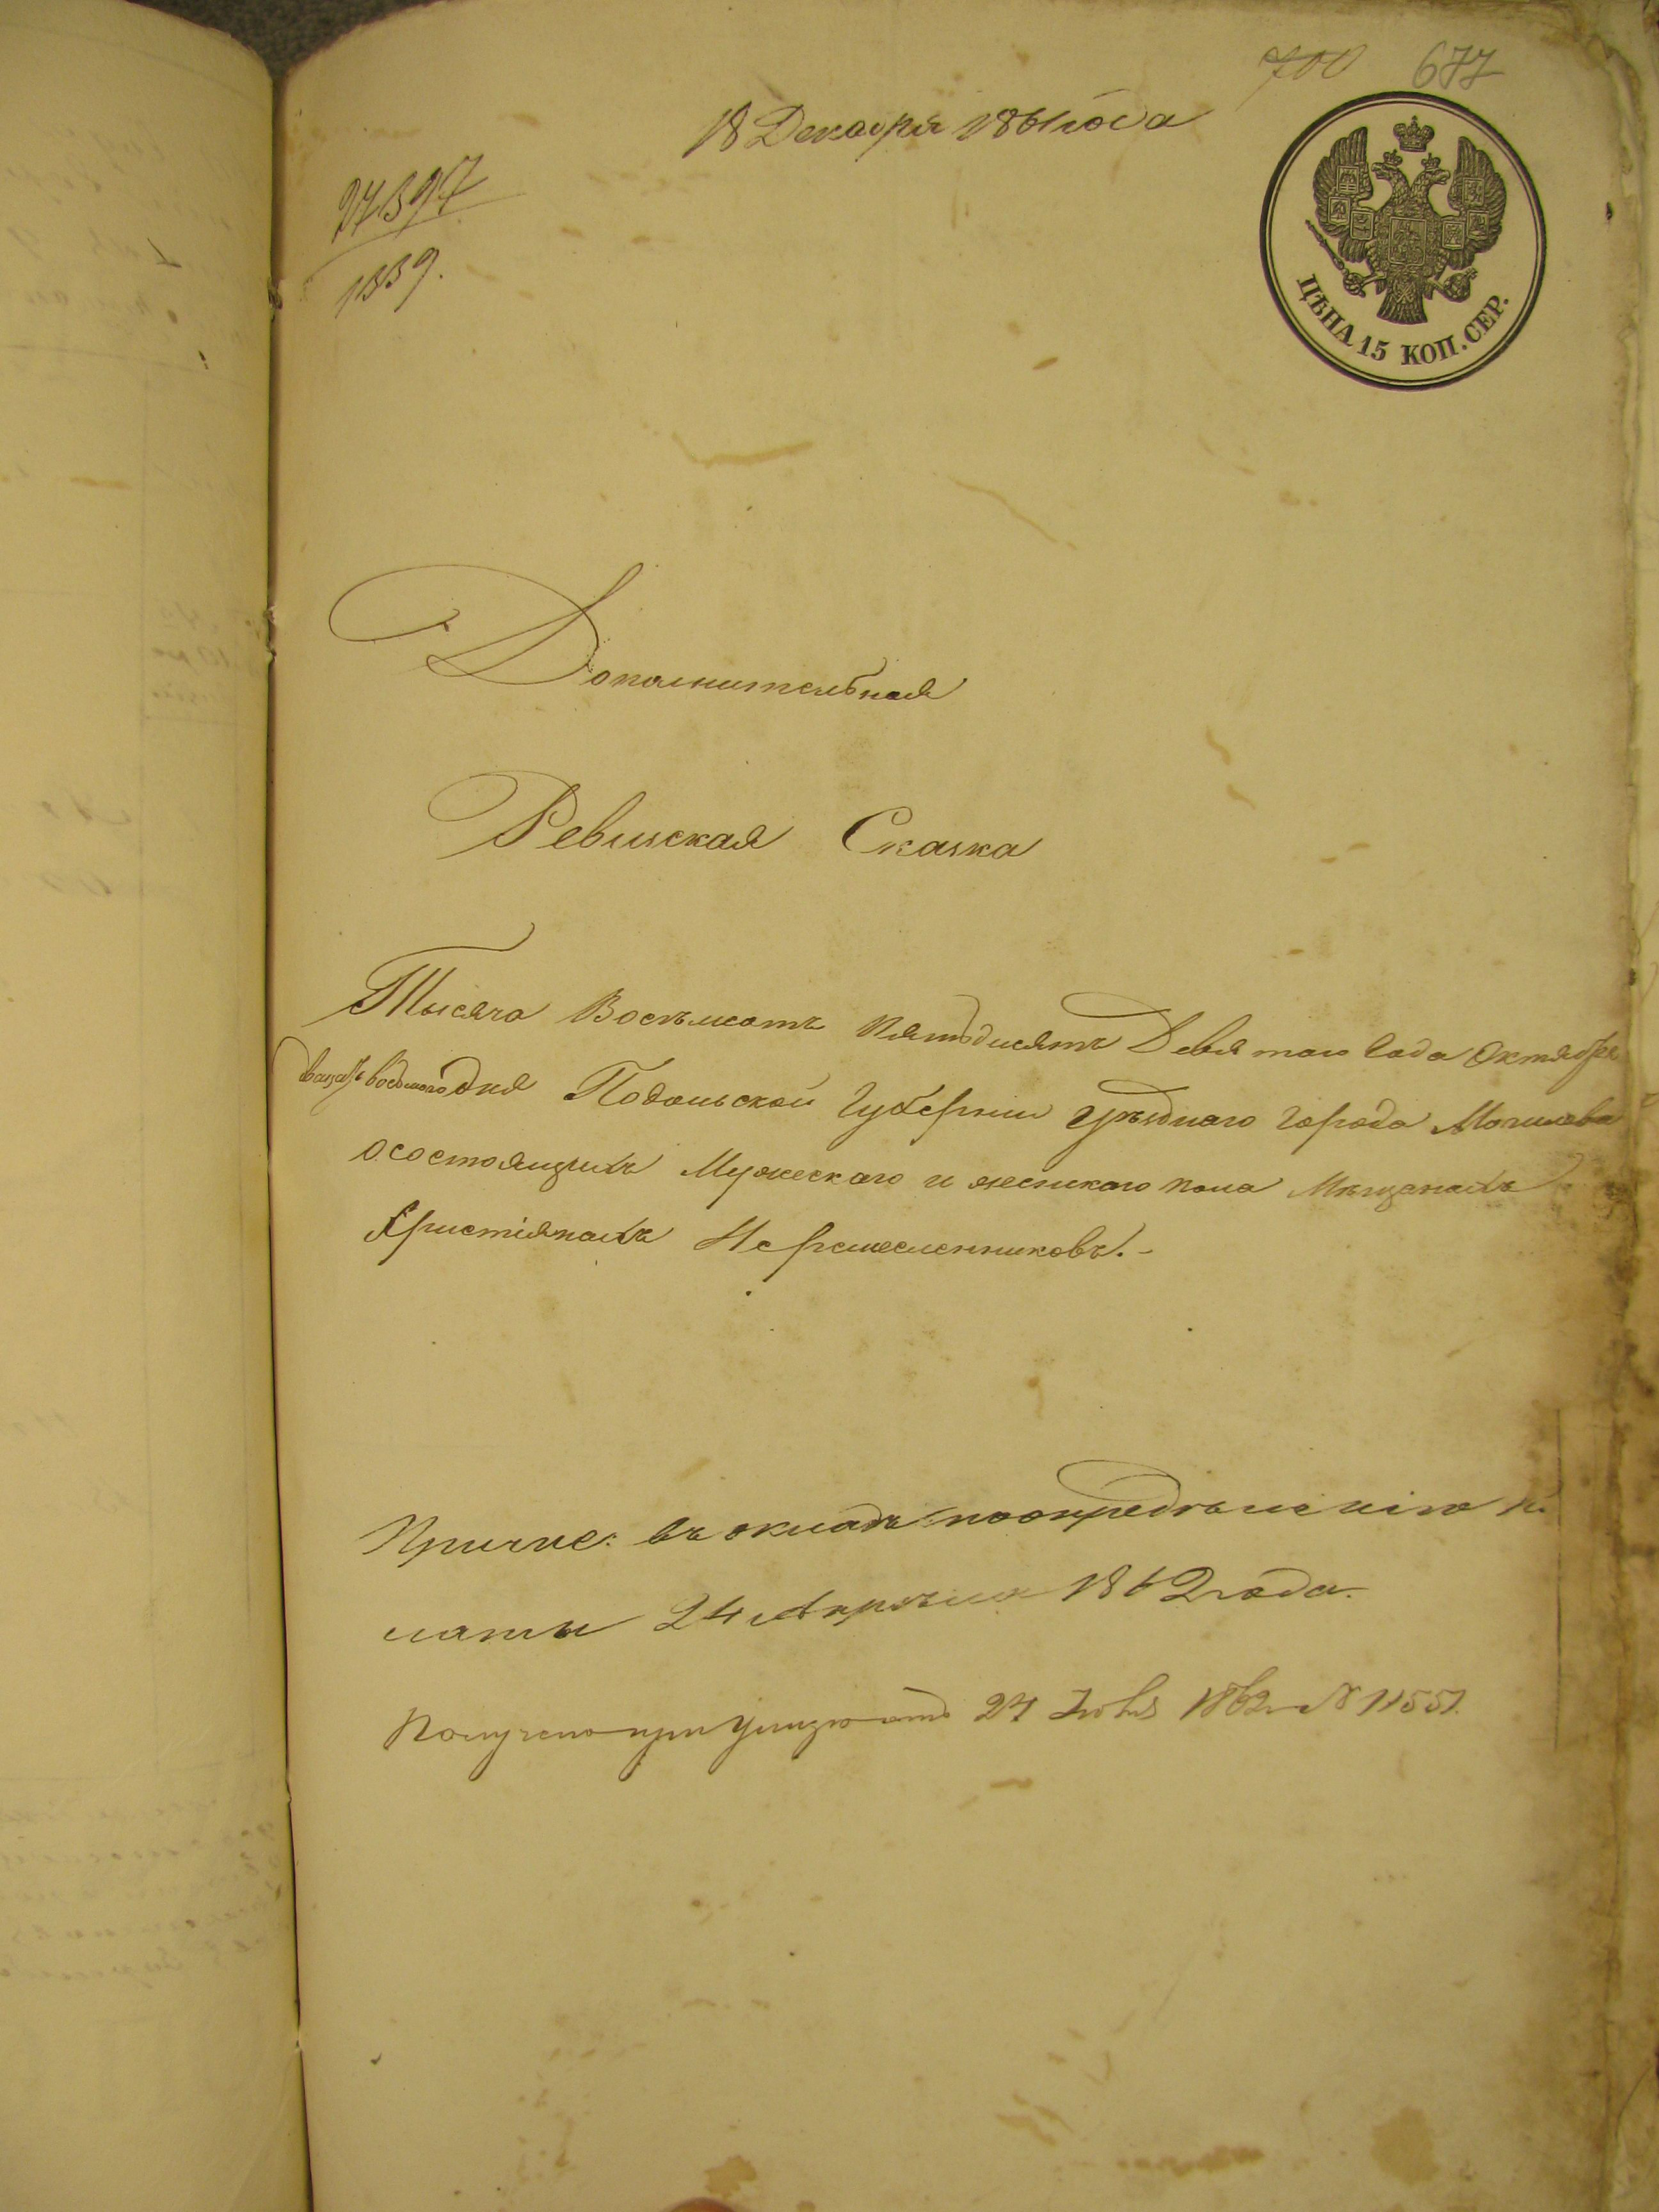 700 677
18 Декабря 1861 года
ЦѢНА 15 КОП. СЕР.
27397
1339.
Дополнительная
Ревизская Сказка
Тысяча Восѣмсотъ Пятьдисятъ Девятого Года Октября
двадцать восьмого дня Подольской Губерніи Уѣзднаго Города Могилева
о состоящихъ Мужескаго и женскаго пола Мѣщанахъ
Христіянахъ Неремесленниковъ.-
Причис: въ окладъ по опредѣленію п.
латы 24 Апрѣля 1862 года.
Получено при Указѣ отъ 27 1862 № 11551.